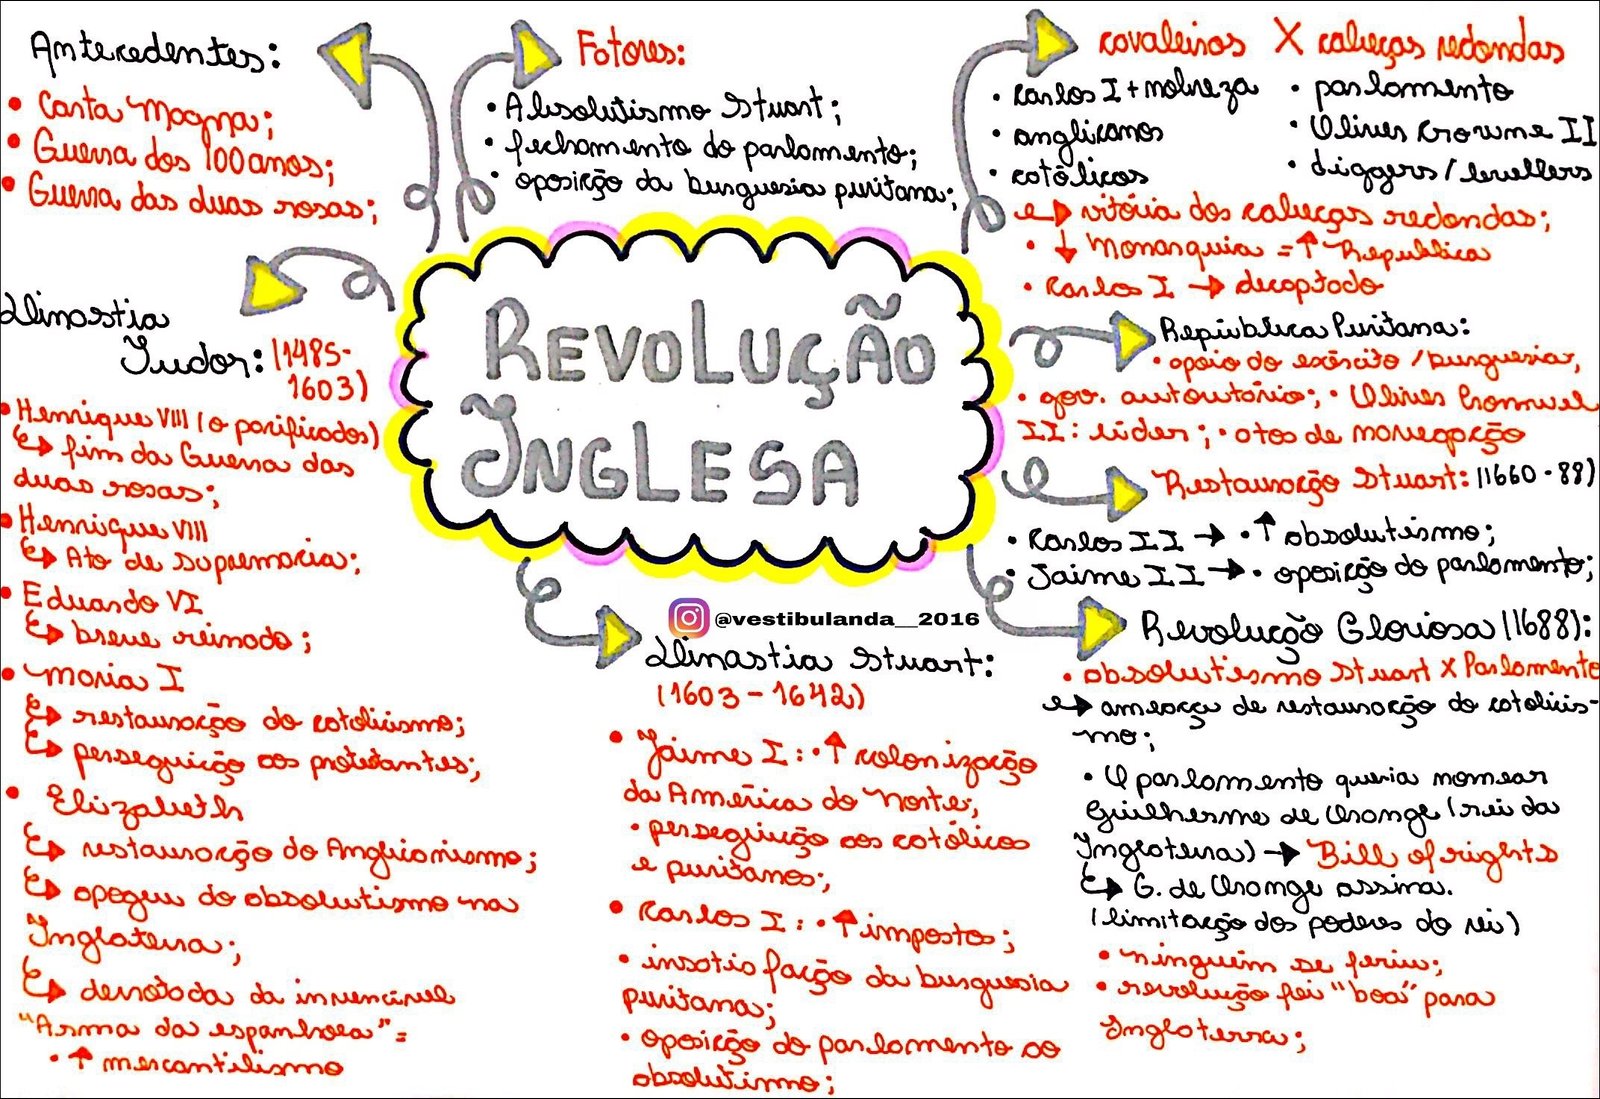 Antecedentes:
• Carta Magna;
• Guerra dos 100 anos;
• Guerra das duas rosas;
Dinastia
Tudor: (1485-
1603)
• Henrique VIII (o pacificados)
↳ fim da Guerra das
duas rosas;
• Henrique VIII
↳ Ato de supremacia;
• Eduardo VI
↳ breve reinado;
• Maria I
↳ restauração do catolicismo;
↳ perseguição aos protestantes;
• Elizabeth
↳ restauração do Anglicanismo;
↳ apogeu do absolutismo na
Inglaterra;
↳ derrotada da invencível
"Arma da espanhola" =
• ↑ mercantilismo
Fatores:
• Absolutismo Stuart;
• fechamento do parlamento;
• oposição da burguesia puritana;
REVOLUÇÃO
INGLESA
@vestibulanda__2016
Dinastia Stuart:
(1603 - 1642)
• Jaime I: • ↑ colonização
da América do Norte;
• perseguição aos católicos
e puritanos;
• Carlos I: • ↑ impostos;
• insatisfação da burguesia
puritana;
• oposição do parlamento ao
absolutismo;
cavaleiros X cabeças redondas
• Carlos I + nobreza
• anglicanos
• católicos
• parlamento
• Oliver Crowme II
• diggers / levellers
↳ vitória dos cabeças redondas;
• ↓ Monarquia = ↑ Republica
• Carlos I → decaptado
República Puritana:
• apoio do exército / burguesia,
• gov. autoritário; • Oliver Cromwel
II: líder; • atos de navegação
Restauração Stuart: (1660 - 88)
• Carlos II → • ↑ absolutismo;
• Jaime II → • oposição do parlamento;
Revolução Gloriosa (1688):
• absolutismo Stuart X Parlamento
↳ ameaça de restauração do catolicis-
mo;
• O parlamento queria nomear
Guilherme de Orange (rei da
Inglaterra) → Bill of rights
↳ G. de Orange assina.
(limitação dos poderes do rei)
• ninguém se feriu;
• revolução foi "boa" para
Inglaterra;